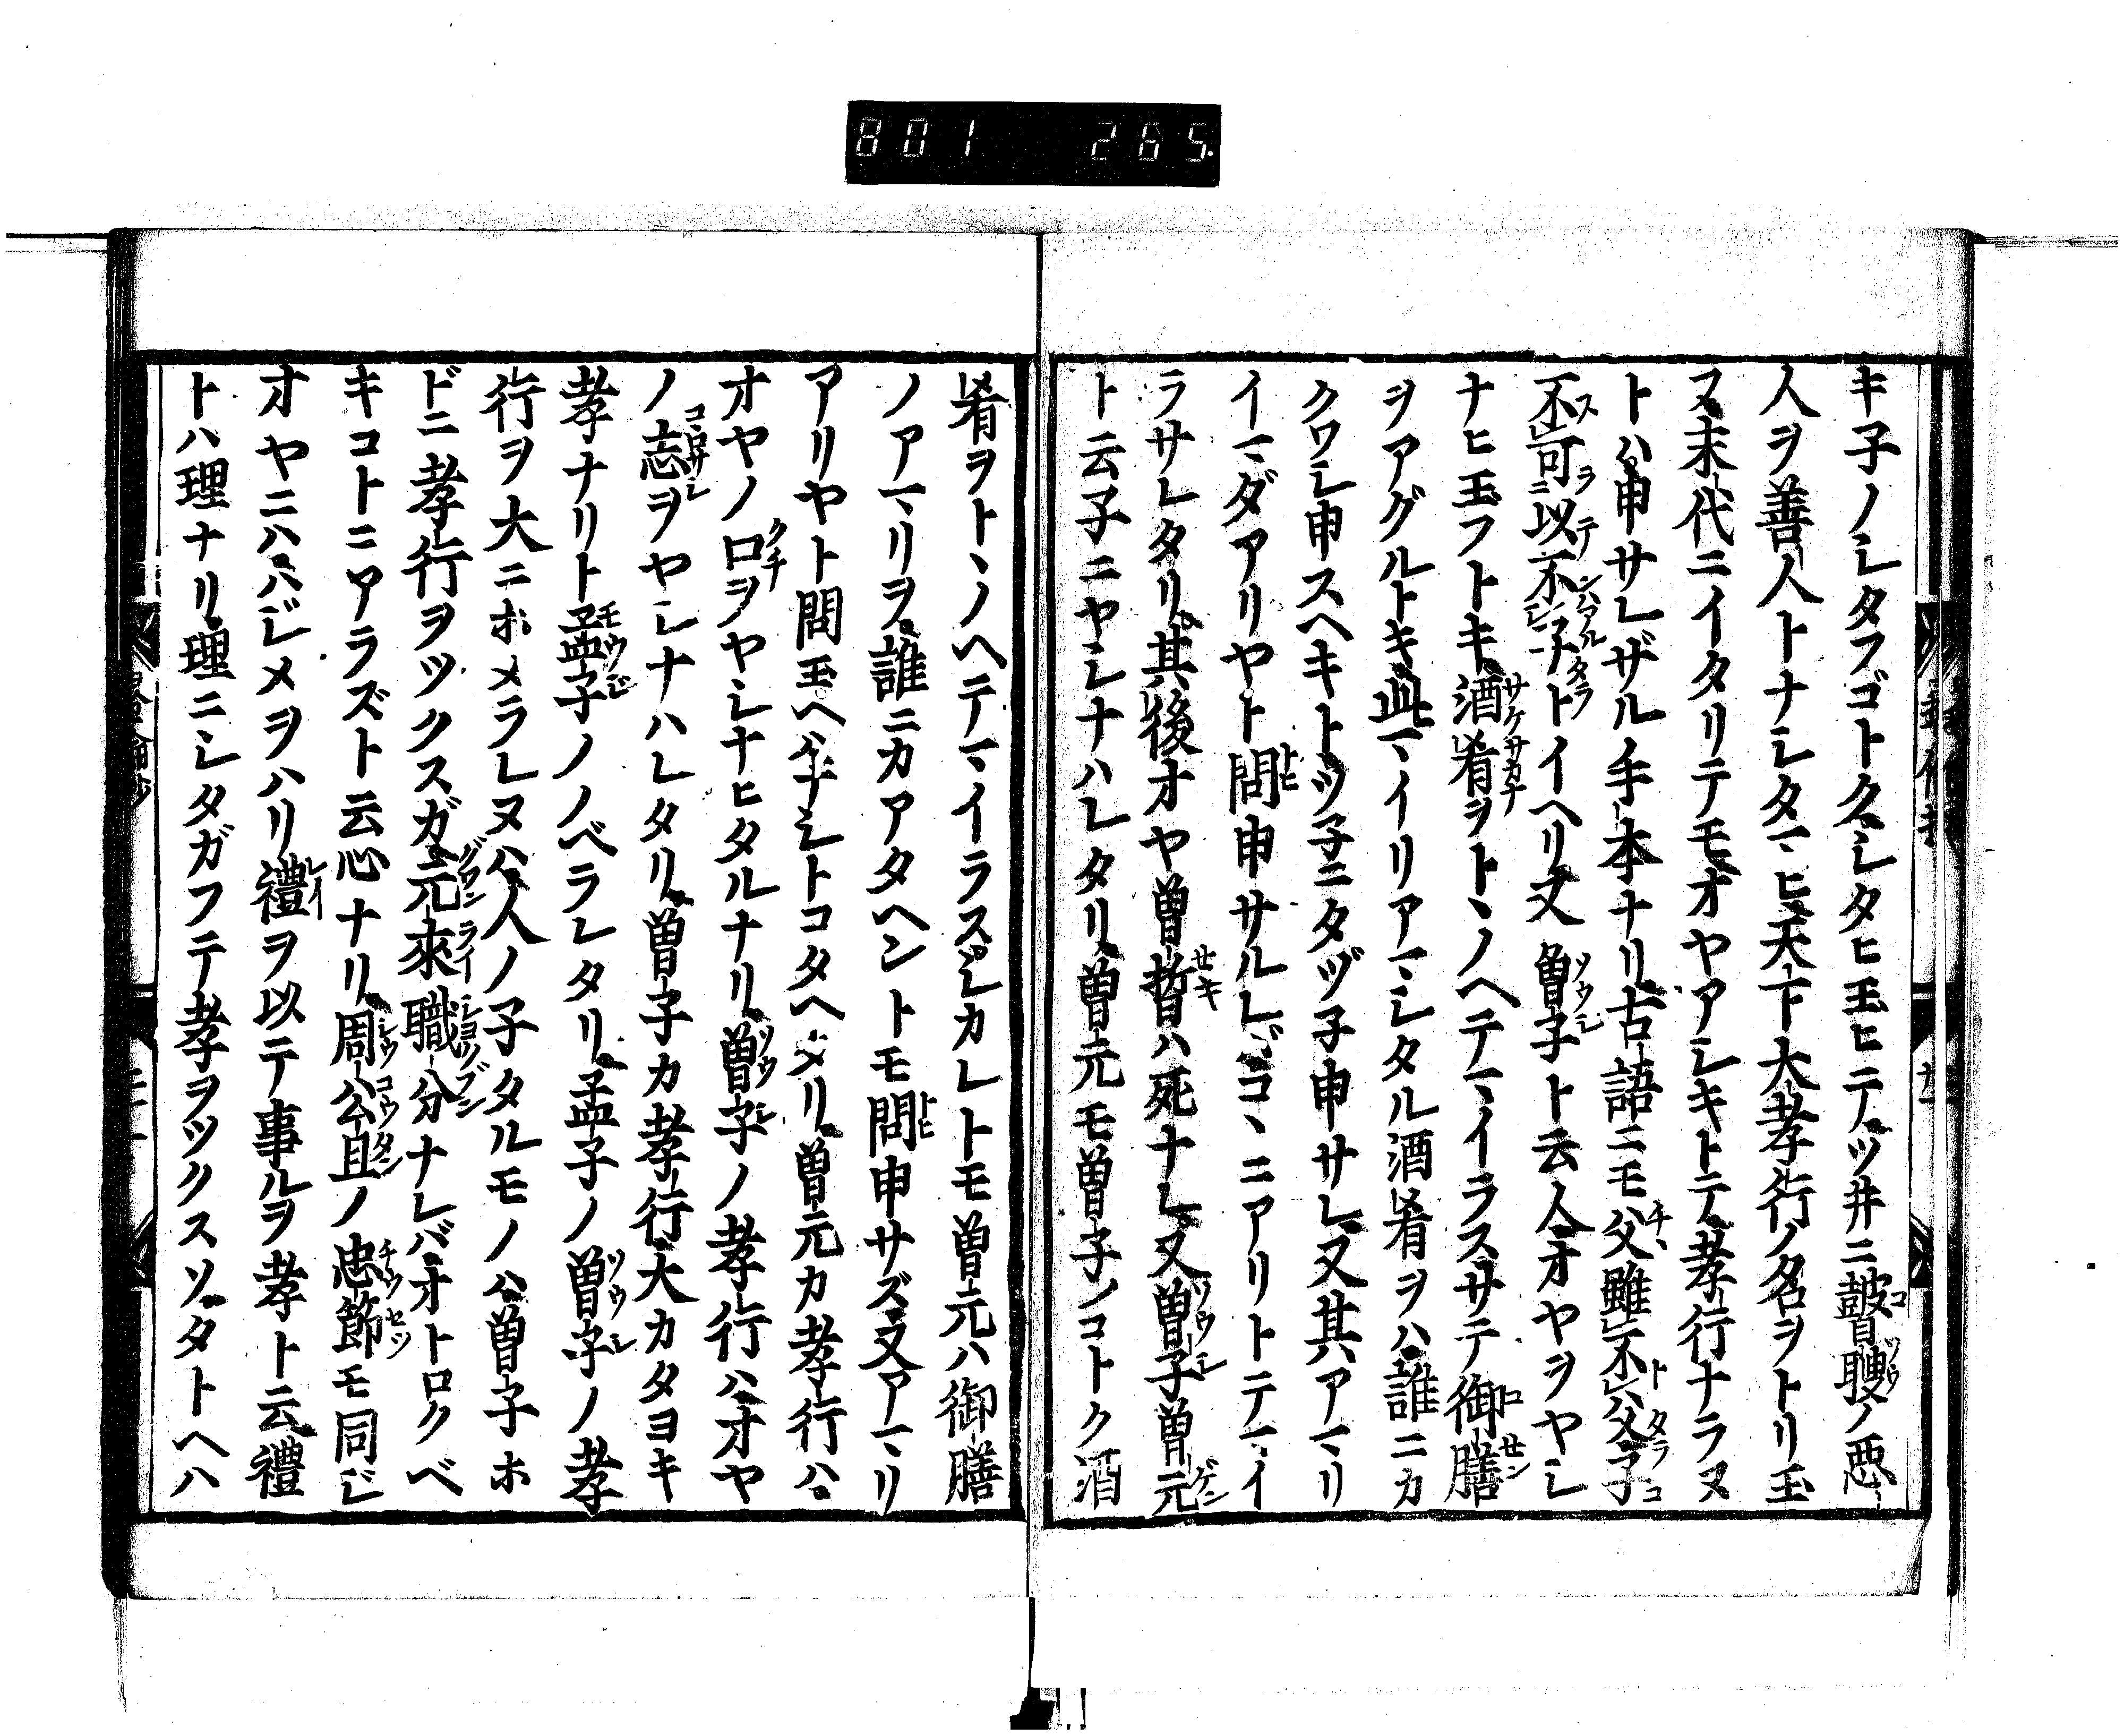 801 265.
キ子ノシタフゴトク。シタヒ玉ヒテ。ツ井ニ瞽瞍ノ悪
人ヲ善人トナシタマヒ。天下大孝行ノ名ヲトリ玉
ヌ。末代ニイタリテモ。オヤアシキトテ。孝行ナラヌ
トハ。申サレザル手本ナリ。古語ニモ。父雖不父。子
不可以不子トイヘリ。又曽子ト云人。オヤヲヤシ
ナヒ玉フトキ。酒肴ヲトヽノヘテマイラス。サテ御膳
ヲアグルトキ。此マイリアマシタル酒肴ヲハ。誰ニカ
クワシ申スヘキト。ツ子ニタヅ子申サレ。又其アマリ
イマダアリヤト問申サルレバ。コヽニアリトテマイ
ラサレタリ。其後オヤ曽晳ハ死ナレ。又曽子曽元
ト云子ニヤシナハレタリ。曽元モ曽子ノコトク酒
肴ヲトヽノヘテマイラス。シカレトモ曽元ハ御膳
ノアマリヲ。誰ニカアタヘントモ問申サズ。又アマリ
アリヤト問玉ヘハ。ナシトコタヘタリ。曽元カ孝行ハ。
オヤノ口ヲヤシナヒタルナリ。曽子ノ孝行ハ。オヤ
ノ志ヲヤシナハレタリ。曽子カ孝行。大カタヨキ
孝ナリト孟子ノノベラレタリ。孟子ノ曽子ノ孝
行ヲ大ニホメラレヌハ。人ノ子タルモノハ。曽子ホ
ドニ孝行ヲツクスガ。元來職分ナレバ。オトロクベ
キコトニアラズト云心ナリ。周公旦ノ忠節モ同ジ
オヤニハ。ハジメヲハリ禮ヲ以テ事ルヲ孝ト云。禮
トハ理ナリ。理ニシタガフテ孝ヲツクスソ。タトヘハ